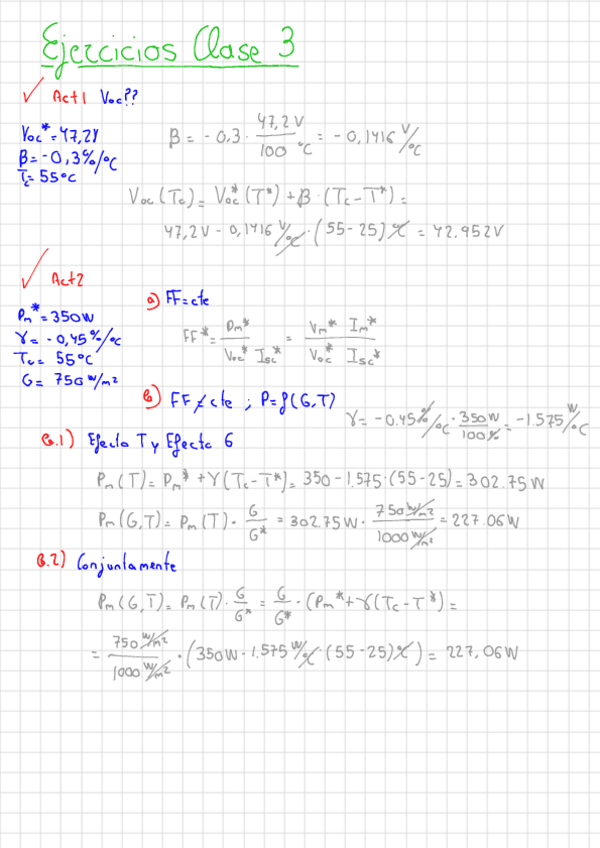 Ejercicios Clase 3
Act1 Voc??
Voc* = 47,2V
β = -0,3%/ºC
Tc = 55ºC
β = -0.3 · 47,2V / 100 ºC = -0,1416 V/ºC
Voc (Tc) = Voc*(T*) + β · (Tc - T*) =
47,2V - 0,1416 V/ºC · (55-25)ºC = 42.952V
Act2
Pm* = 350W
γ = -0,45%/ºC
Tc = 55ºC
G = 750 W/m²
a) FF = cte
FF* = Pm* / Voc* Isc* = Vm* Im* / Voc* Isc*
b) FF ≠ cte ; P = f(G,T)
γ = -0.45%/ºC · 350W / 100% = -1.575 W/ºC
b.1) Efecto T y Efecto G
Pm(T) = Pm* + γ(Tc - T*) = 350 - 1.575 · (55-25) = 302.75W
Pm(G,T) = Pm(T) · G / G* = 302.75W · 750 W/m² / 1000 W/m² = 227.06W
b.2) Conjuntamente
Pm(G,T) = Pm(T) · G / G* = G / G* · (Pm* + γ(Tc - T*) =
= 750 W/m² / 1000 W/m² · (350W - 1.575 W/ºC · (55-25)ºC) = 227,06W